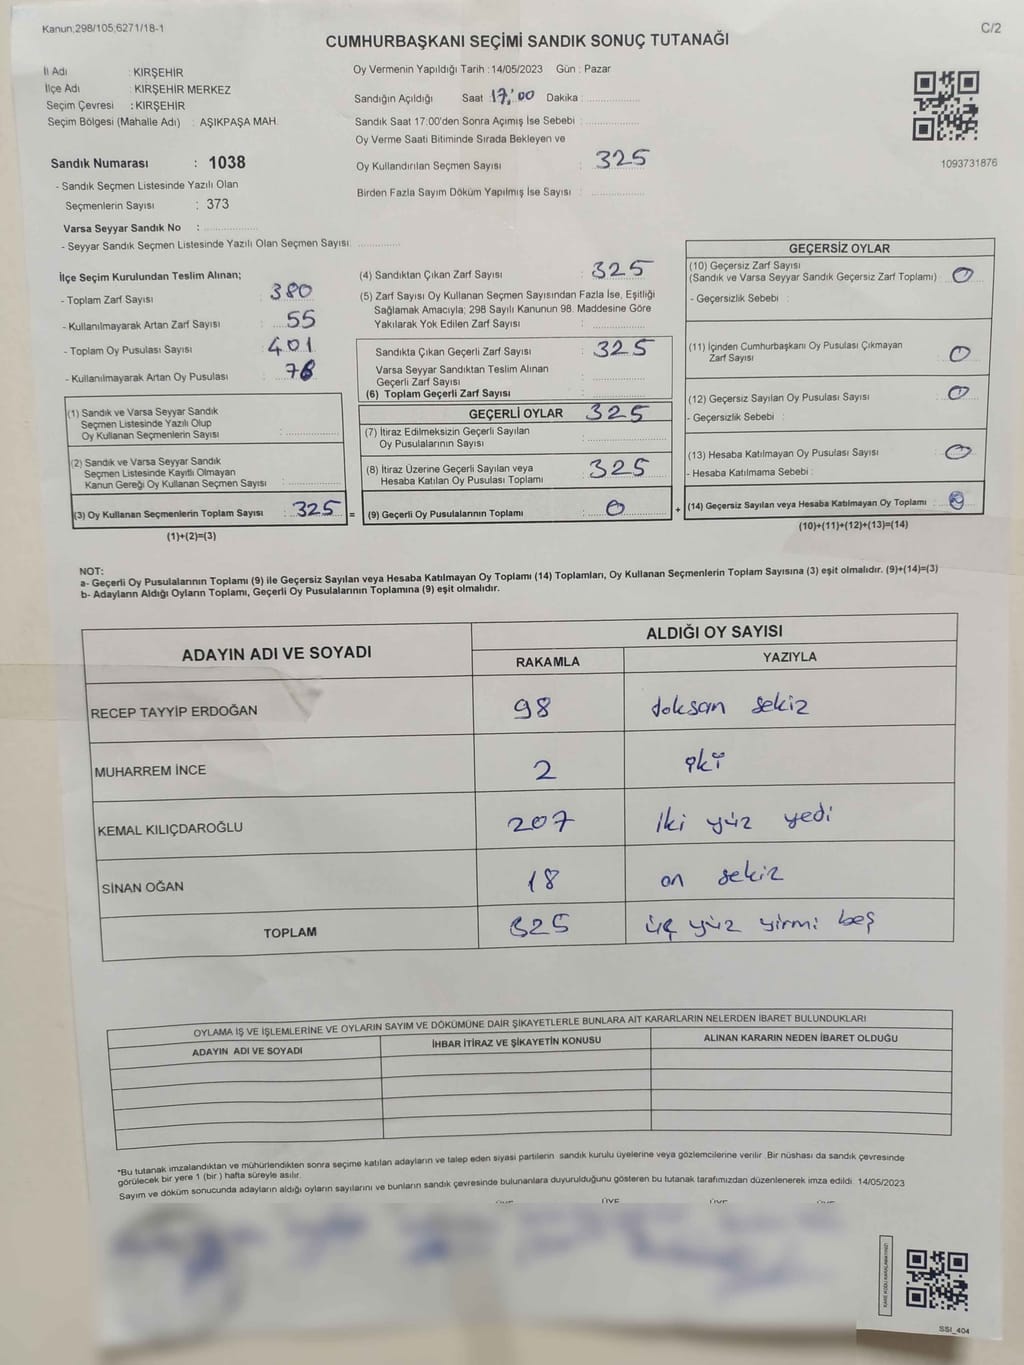 Kanun;298/105;6271/18-1
C/2
CUMHURBAŞKANI SEÇİMİ SANDIK SONUÇ TUTANAĞI
İl Adı : KIRŞEHİR
İlçe Adı : KIRŞEHİR MERKEZ
Seçim Çevresi : KIRŞEHİR
Seçim Bölgesi (Mahalle Adı) : AŞIKPAŞA MAH.
Sandık Numarası : 1038
- Sandık Seçmen Listesinde Yazılı Olan
Seçmenlerin Sayısı : 373
Varsa Seyyar Sandık No :
- Seyyar Sandık Seçmen Listesinde Yazılı Olan Seçmen Sayısı:
Oy Vermenin Yapıldığı Tarih : 14/05/2023 Gün : Pazar
Sandığın Açıldığı Saat 17:00 Dakika :
Sandık Saat 17:00'den Sonra Açımış İse Sebebi :
Oy Verme Saati Bitiminde Sırada Bekleyen ve
Oy Kullandırılan Seçmen Sayısı : 325
Birden Fazla Sayım Döküm Yapılmış İse Sayısı :
1093731876
İlçe Seçim Kurulundan Teslim Alınan;
- Toplam Zarf Sayısı : 380
- Kullanılmayarak Artan Zarf Sayısı : 55
- Toplam Oy Pusulası Sayısı : 401
- Kullanılmayarak Artan Oy Pusulası :
(1) Sandık ve Varsa Seyyar Sandık
Seçmen Listesinde Yazılı Olup
Oy Kullanan Seçmenlerin Sayısı :
(2) Sandık ve Varsa Seyyar Sandık
Seçmen Listesinde Kayıtlı Olmayan
Kanun Gereği Oy Kullanan Seçmen Sayısı :
(3) Oy Kullanan Seçmenlerin Toplam Sayısı : 325 =
(1)+(2)=(3)
(4) Sandıktan Çıkan Zarf Sayısı : 325
(5) Zarf Sayısı Oy Kullanan Seçmen Sayısından Fazla İse, Eşitliği
Sağlamak Amacıyla; 298 Sayılı Kanunun 98. Maddesine Göre
Yakılarak Yok Edilen Zarf Sayısı :
Sandıkta Çıkan Geçerli Zarf Sayısı : 325
Varsa Seyyar Sandıktan Teslim Alınan
Geçerli Zarf Sayısı :
(6) Toplam Geçerli Zarf Sayısı :
GEÇERLİ OYLAR 325
(7) İtiraz Edilmeksizin Geçerli Sayılan
Oy Pusulalarının Sayısı :
(8) İtiraz Üzerine Geçerli Sayılan veya
Hesaba Katılan Oy Pusulası Toplamı : 325
(9) Geçerli Oy Pusulalarının Toplamı : 0 +
GEÇERSİZ OYLAR
(10) Geçersiz Zarf Sayısı
(Sandık ve Varsa Seyyar Sandık Geçersiz Zarf Toplamı) : 0
- Geçersizlik Sebebi :
(11) İçinden Cumhurbaşkanı Oy Pusulası Çıkmayan
Zarf Sayısı : 0
(12) Geçersiz Sayılan Oy Pusulası Sayısı : 0
- Geçersizlik Sebebi :
(13) Hesaba Katılmayan Oy Pusulası Sayısı : 0
- Hesaba Katılmama Sebebi :
(14) Geçersiz Sayılan veya Hesaba Katılmayan Oy Toplamı :
(10)+(11)+(12)+(13)=(14)
NOT:
a- Geçerli Oy Pusulalarının Toplamı (9) ile Geçersiz Sayılan veya Hesaba Katılmayan Oy Toplamı (14) Toplamları, Oy Kullanan Seçmenlerin Toplam Sayısına (3) eşit olmalıdır. (9)+(14)=(3)
b- Adayların Aldığı Oyların Toplamı, Geçerli Oy Pusulalarının Toplamına (9) eşit olmalıdır.
ADAYIN ADI VE SOYADI
ALDIĞI OY SAYISI
RAKAMLA YAZIYLA
RECEP TAYYİP ERDOĞAN 98 doksan sekiz
MUHARREM İNCE 2 iki
KEMAL KILIÇDAROĞLU 207 iki yüz yedi
SİNAN OĞAN 18 on sekiz
TOPLAM 325 üç yüz yirmi beş
OYLAMA İŞ VE İŞLEMLERİNE VE OYLARIN SAYIM VE DÖKÜMÜNE DAİR ŞİKAYETLERLE BUNLARA AİT KARARLARIN NELERDEN İBARET BULUNDUKLARI
ADAYIN ADI VE SOYADI İHBAR İTİRAZ VE ŞİKAYETİN KONUSU ALINAN KARARIN NEDEN İBARET OLDUĞU
*Bu tutanak imzalandıktan ve mühürlendikten sonra seçime katılan adayların ve talep eden siyasi partilerin sandık kurulu üyelerine veya gözlemcilerine verilir. Bir nüshası da sandık çevresinde
görülecek bir yere 1 (bir ) hafta süreyle asılır.
Sayım ve döküm sonucunda adayların aldığı oyların sayılarını ve bunların sandık çevresinde bulunanlara duyurulduğunu gösteren bu tutanak tarafımızdan düzenlenerek imza edildi. 14/05/2023
ÜYE ÜYE ÜYE ÜYE
SSI_404